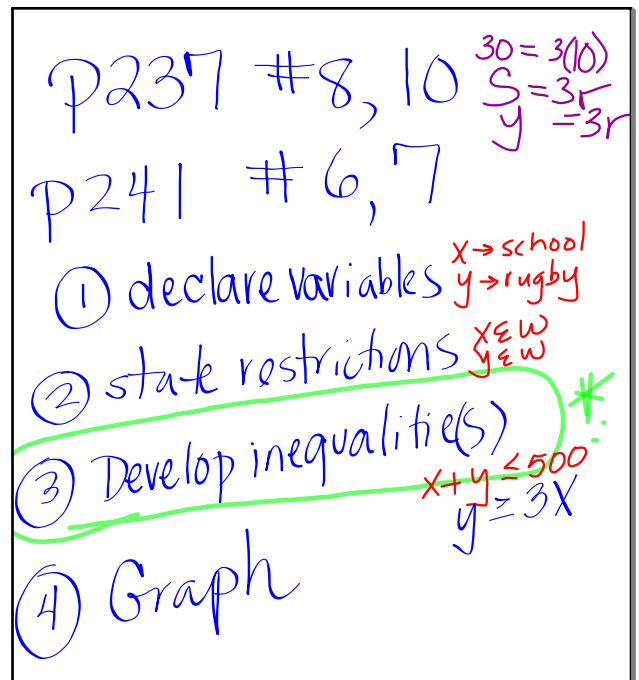 p237 #8, 10
30 = 3(10)
S = 3r
y = 3r
p241 #6, 7
① declare variables
x → school
y → rugby
② state restrictions
x ε W
y ε W
③ Develop inequalitie(s)
x + y ≤ 500
y ≥ 3x
④ Graph